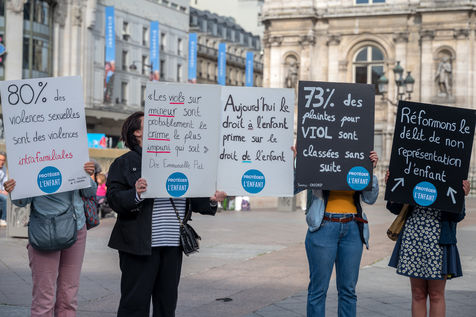 80%
des
violences sexuelles
sont des violences
intrafamiliales
PROTÉGER
L'ENFANT
« Les viols sur
mineur sont
probablement le
crime le plus
impuni qui soit »
PROTÉGER
L'ENFANT
Aujourd'hui le
droit à l'enfant
prime sur le
droit de l'enfant
PROTÉGER
L'ENFANT
73% des
plaintes pour
VIOL sont
classées sans
suite
PROTÉGER
L'ENFANT
Réformons le
délit de non
représentation
d'enfant
PROTÉGER
L'ENFANT